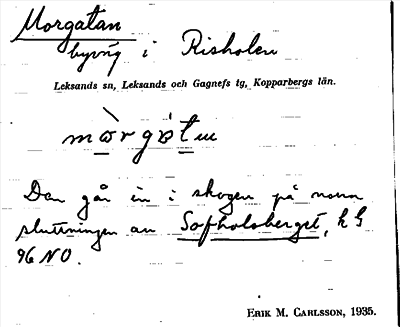 Morgatan
byväg i Risholen
Leksands sn, Leksands och Gagnefs tg, Kopparbergs län.
Den går in i skogen på norra
sluttningen av Sofholsberget, k G
96 NO.
ERIK M. CARLSSON, 1935.